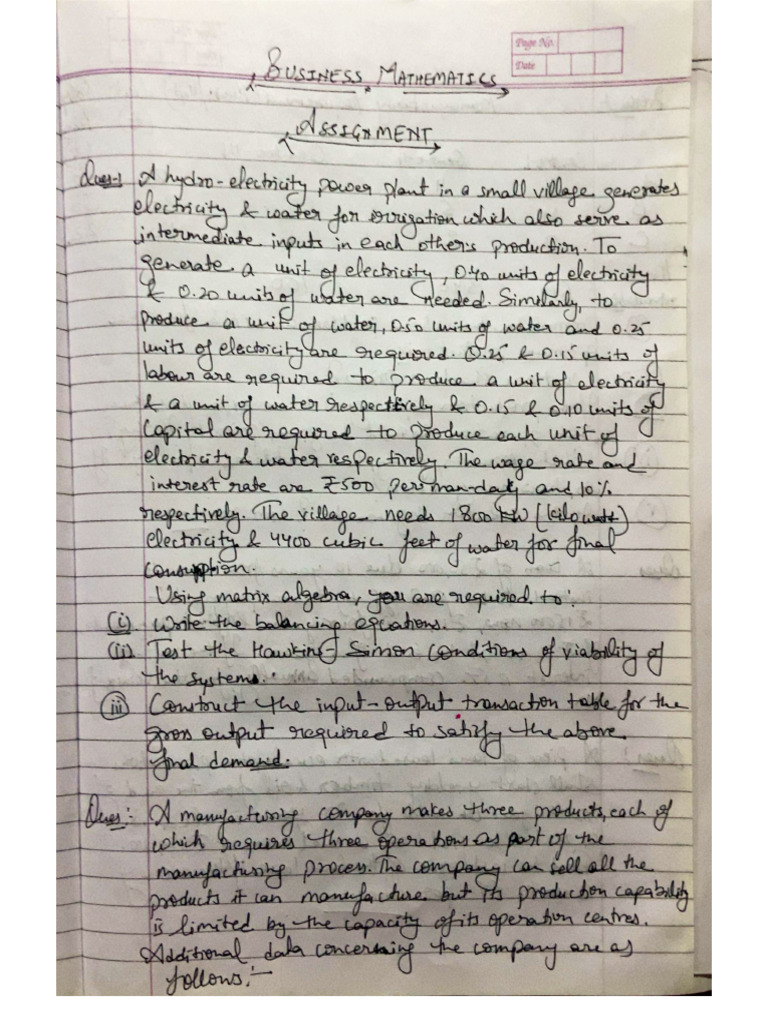 Page No.
Date
BUSINESS MATHEMATICS
ASSIGNMENT
Ques-1 A hydro-electricity power plant in a small village generates
electricity & water for irrigation which also serve as
intermediate inputs in each other's production. To
generate a unit of electricity, 0.40 units of electricity
& 0.20 units of water are needed. Similarly, to
produce a unit of water, 0.50 units of water and 0.25
units of electricity are required. 0.25 & 0.15 units of
labour are required to produce a unit of electricity
& a unit of water respectively & 0.15 & 0.10 units of
Capital are required to produce each unit of
electricity & water respectively. The wage rate and
interest rate are ₹500 per man-day and 10%
respectively. The village needs 1800 kW (kilowatt)
electricity & 4400 cubic feet of water for final
consumption.
Using matrix algebra, you are required to:
(i) Write the balancing equations.
(ii) Test the Hawking-Simon conditions of viability of
the systems.
(iii) Construct the input-output transaction table for the
gross output required to satisfy the above
final demand.
Ques:- A manufacturing company makes three products, each of
which requires three operations as part of the
manufacturing process. The company can sell all the
products it can manufacture but its production capability
is limited by the capacity of its operation centres.
Additional data concerning the company are as
follows:-